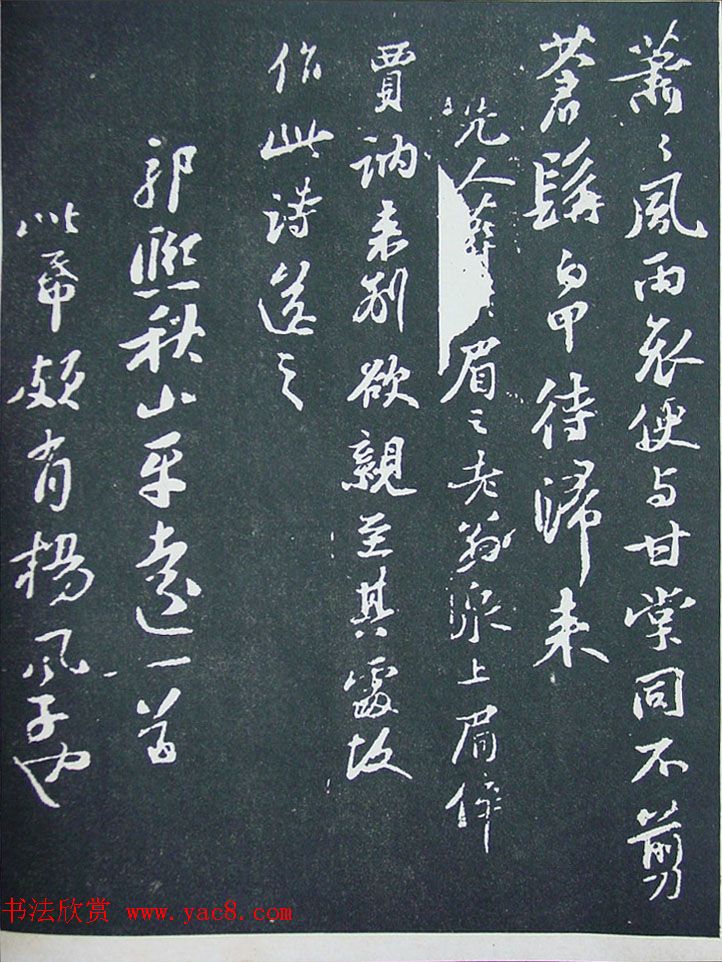 蕭〻風雨哀便与甘棠同不剪
蒼髯白甲待歸来
先人葬眉之老翁泉上眉倅
賈訥未别欲親至其處故
作此詩送之
郭熙秋山平遠一首
此帋頗有楊風子也
书法欣赏 www.yac8.com